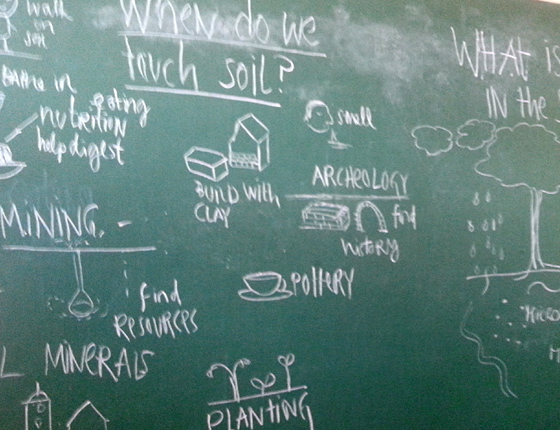 When do we
touch soil?
walk
on
soil
in
nutrition
eating
help digest
smell
BUILD WITH
CLAY
ARCHEOLOGY
find
history
MINING
find
RESOURCES
POTTERY
MINERALS
PLANTING
WHAT IS
IN the
MICRO